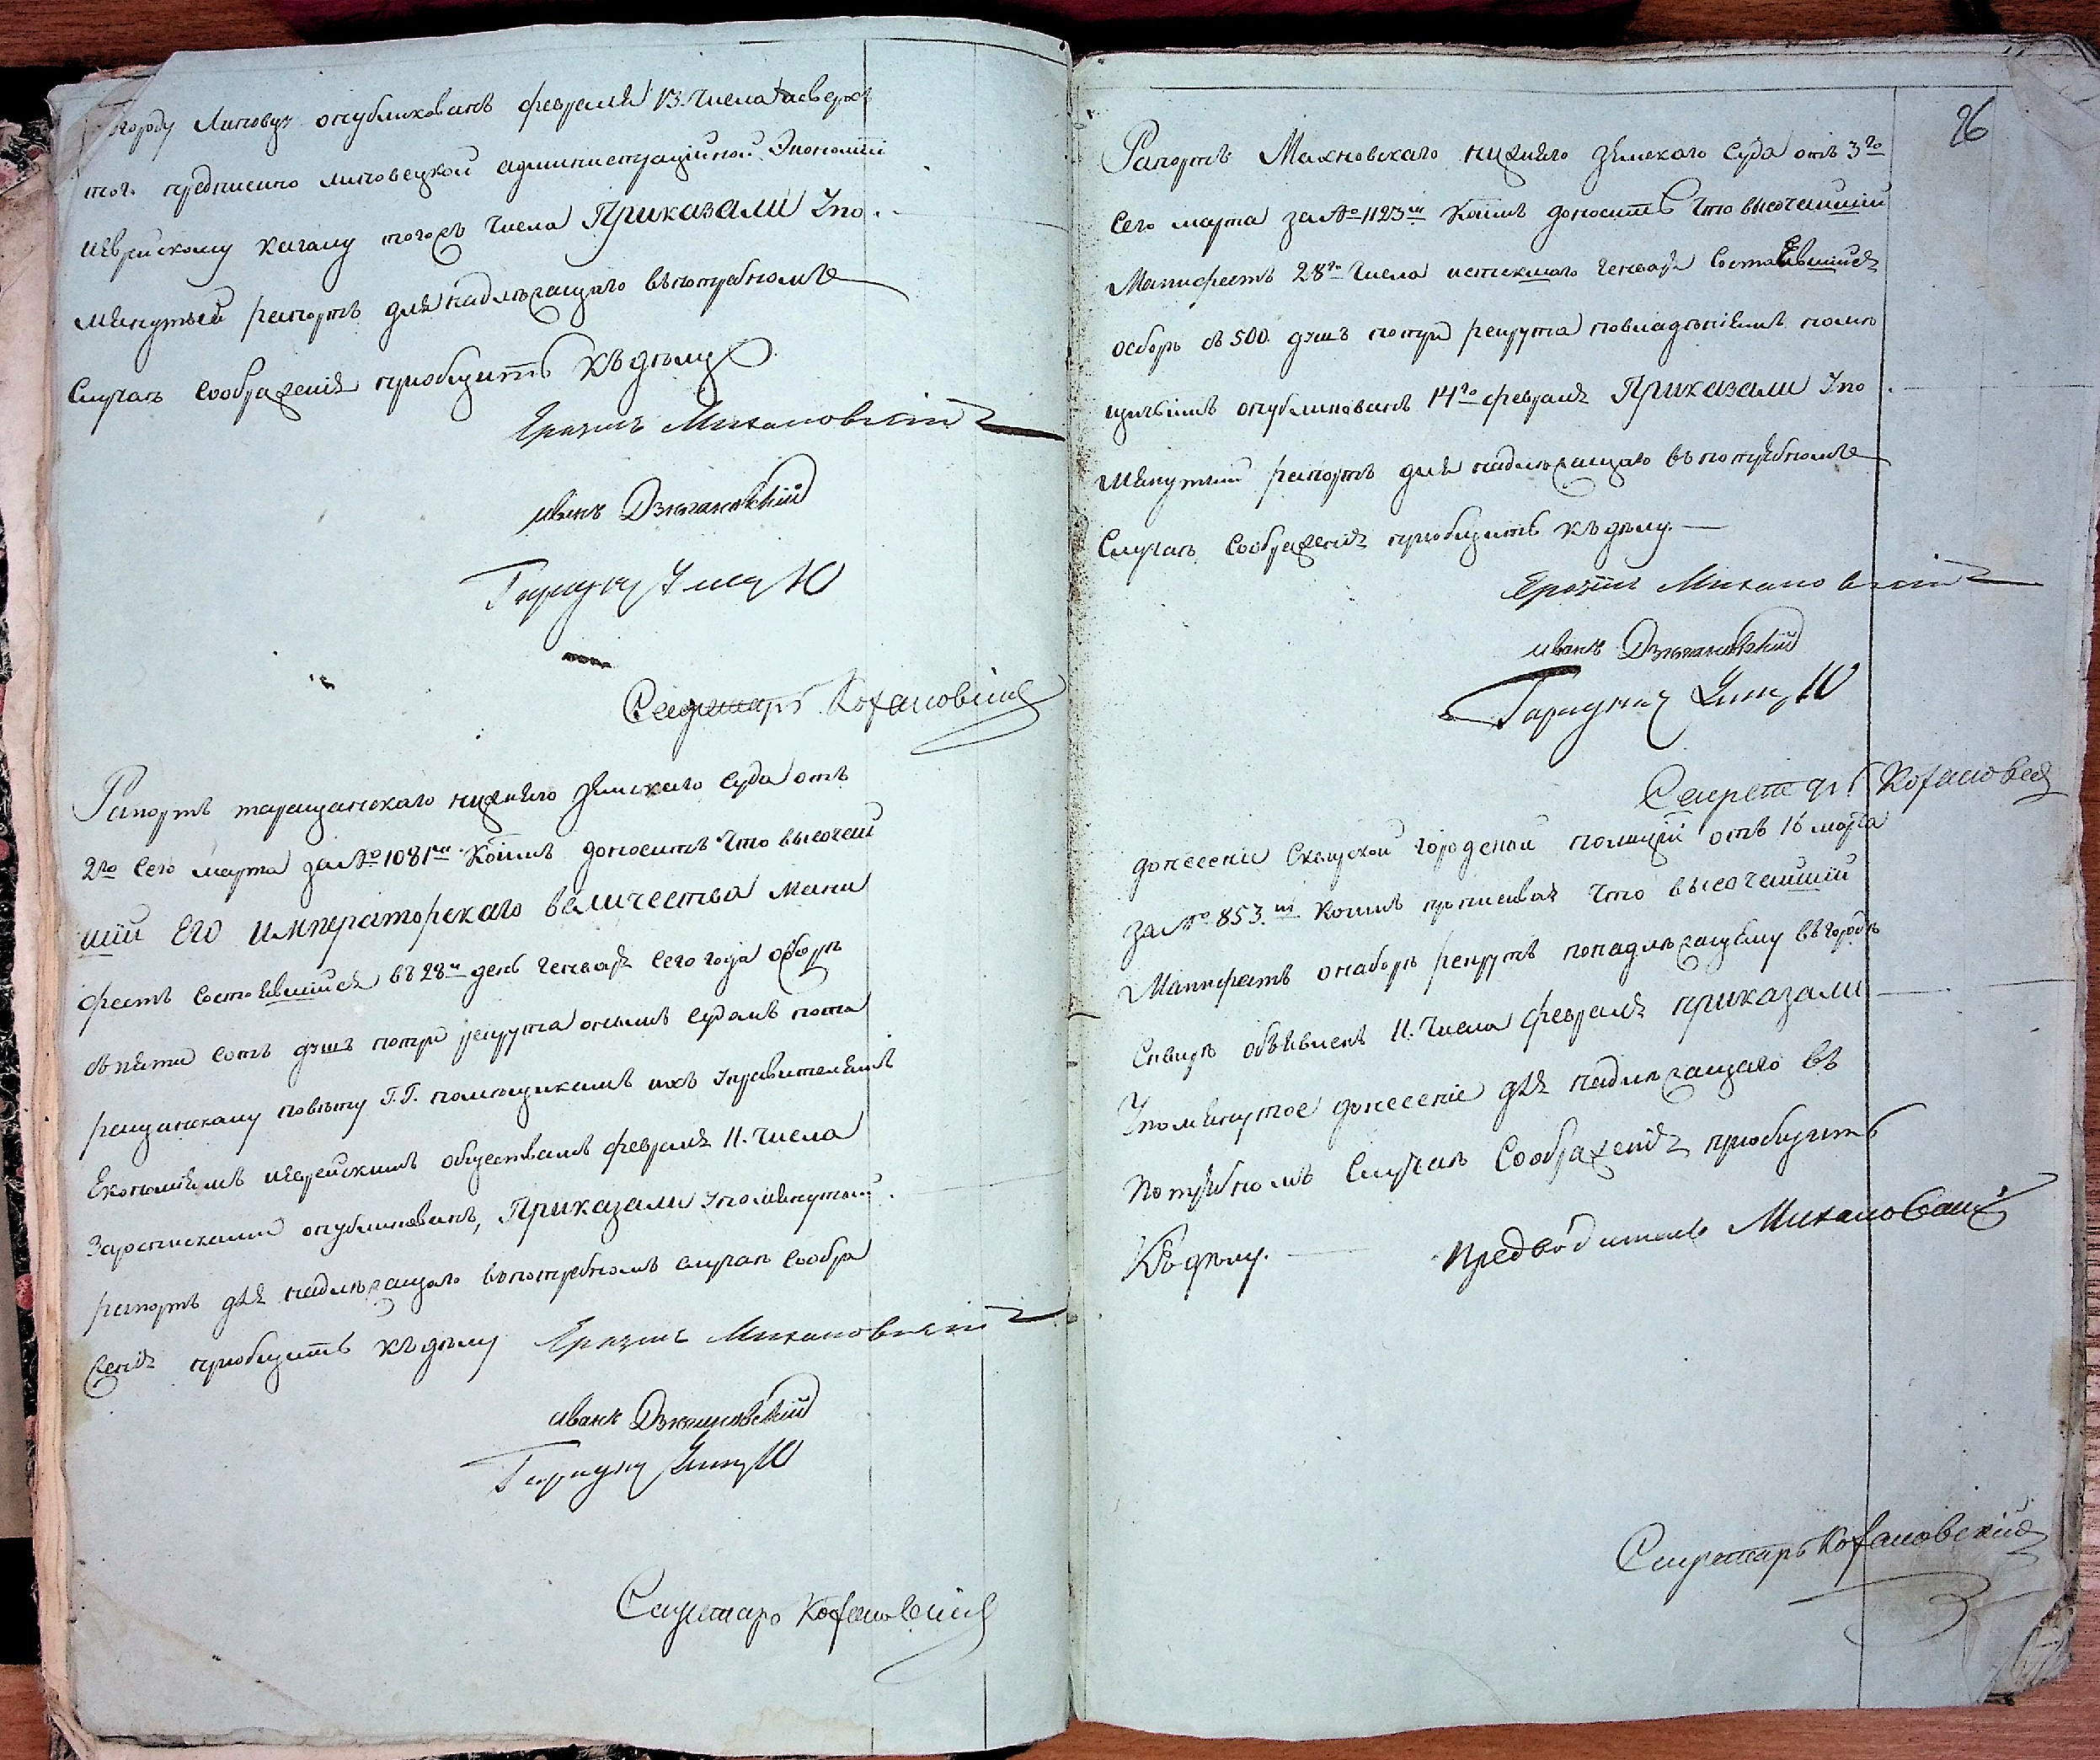 городу Липовцу опубликованъ февраля 13. числа а сверхъ
того предписано липовецкой администрацiйной Экономiи
и еврейскому кагалу тогожъ числа Приказали Упо-
мянутый рапортъ для надлежащаго въ потребномъ
случаѣ соображенiя прiобщить къ дѣлу
Еразмъ Михаловскiй
Иванъ
Секретарь Кохановскiй
Рапортъ таращанскаго нижняго земскаго суда отъ
2го сего марта за № 1081м Коимъ доноситъ что высочай
шiй Его Императорскаго величества Мани
фестъ состоявшiйся въ 28й день генваря сего года о сборѣ
съ пяти сотъ душъ по три рекрута онымъ судомъ по та
ращанскому повѣту Г.Г. помѣщикамъ ихъ управителямъ
Экономiямъ и еврейскимъ обществамъ февраля 11. числа
за росписками опубликованъ, Приказали упомянутый
рапортъ для надлежащаго въ потребномъ случаѣ сообра
женiя прiобщить къ дѣлу Еразмъ Михаловскiй
Иванъ
Секретарь Кохановскiй
26
Рапортъ Махновскаго нижняго земскаго суда отъ 3го
сего марта за № 1123м Коимъ доноситъ что высочайшiй
Манифестъ 28го числа истекшаго генваря состоявшiйся
о сборѣ съ 500 душъ по три рекрута по владѣнiямъ помѣ
щичьимъ опубликованъ 14го февраля Приказали Упо
мянутый рапортъ для надлежащаго въ потребномъ
случаѣ соображенiя прiобщить къ дѣлу. —
Еразмъ Михаловскiй
Иванъ
Секретарь Кохановскiй
донесенiе Сквирской городской полицiи отъ 16 марта
за № 853.м Коимъ прописывая что высочайшiй
Манифестъ о наборѣ рекрутъ по надлежащему въ городѣ
Сквирѣ объявленъ 11. числа февраля приказали
Упомянутое донесенiе для надлежащаго въ
потребномъ случаѣ соображенiя прiобщить
Къ дѣлу. — Предводитель Михаловскiй
Секретарь Кохановскiй